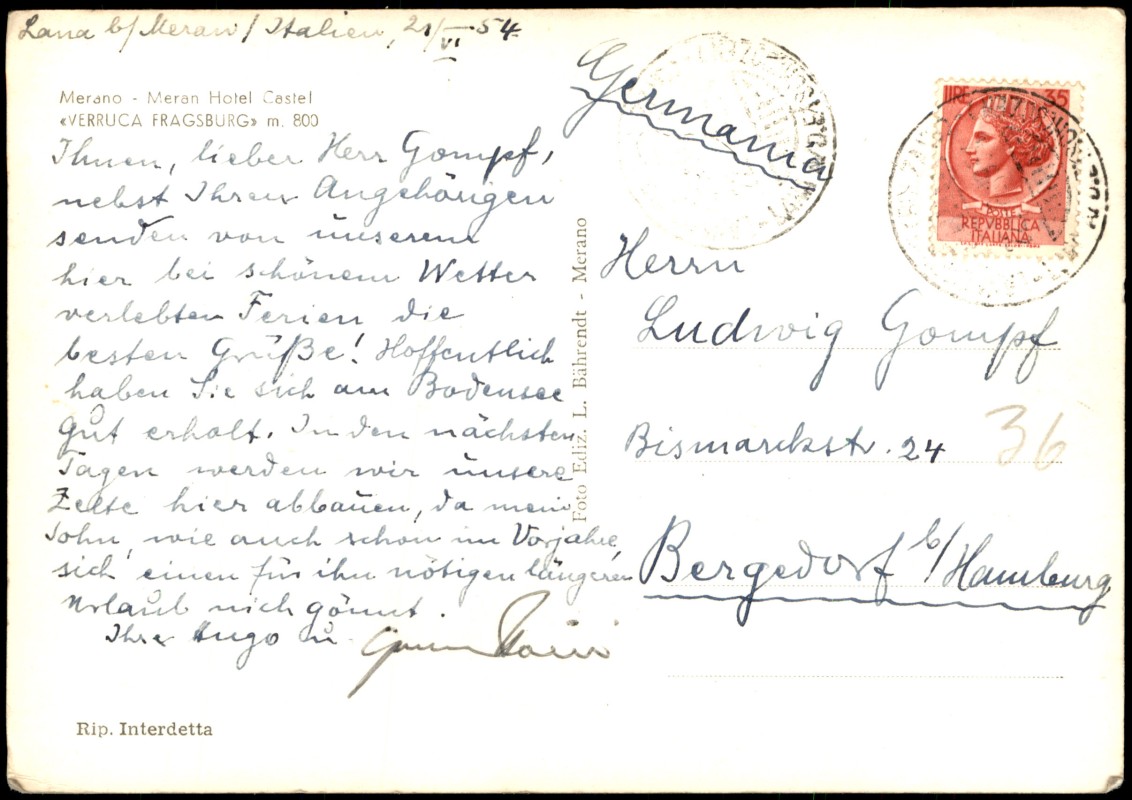 Lana b/Meran/Italien, 21/VI 54
Merano - Meran Hotel Castel
«VERRUCA FRAGSBURG» m. 800
Ihnen, lieber Herr Gompf,
nebst Ihren Angehörigen
senden von unserem
hier bei schönem Wetter
verlebten Ferien die
besten Grüße! Hoffentlich
haben Sie sich am Bodensee
gut erholt. In den nächsten
Tagen werden wir unsere
Zelte hier abbauen, da mein
Sohn, wie auch schon im Vorjahre,
sich einen für ihn nötigen längeren
Urlaub nich gönnt.
Ihr Hugo u.
Rip. Interdetta
Foto Ediz. L. Bährendt - Merano
Germania
LIRE 35
POSTE
REPVBBLICA
ITALIANA
Herrn
Ludwig Gompf
Bismarckstr. 24
36
Bergedorf b/Hamburg